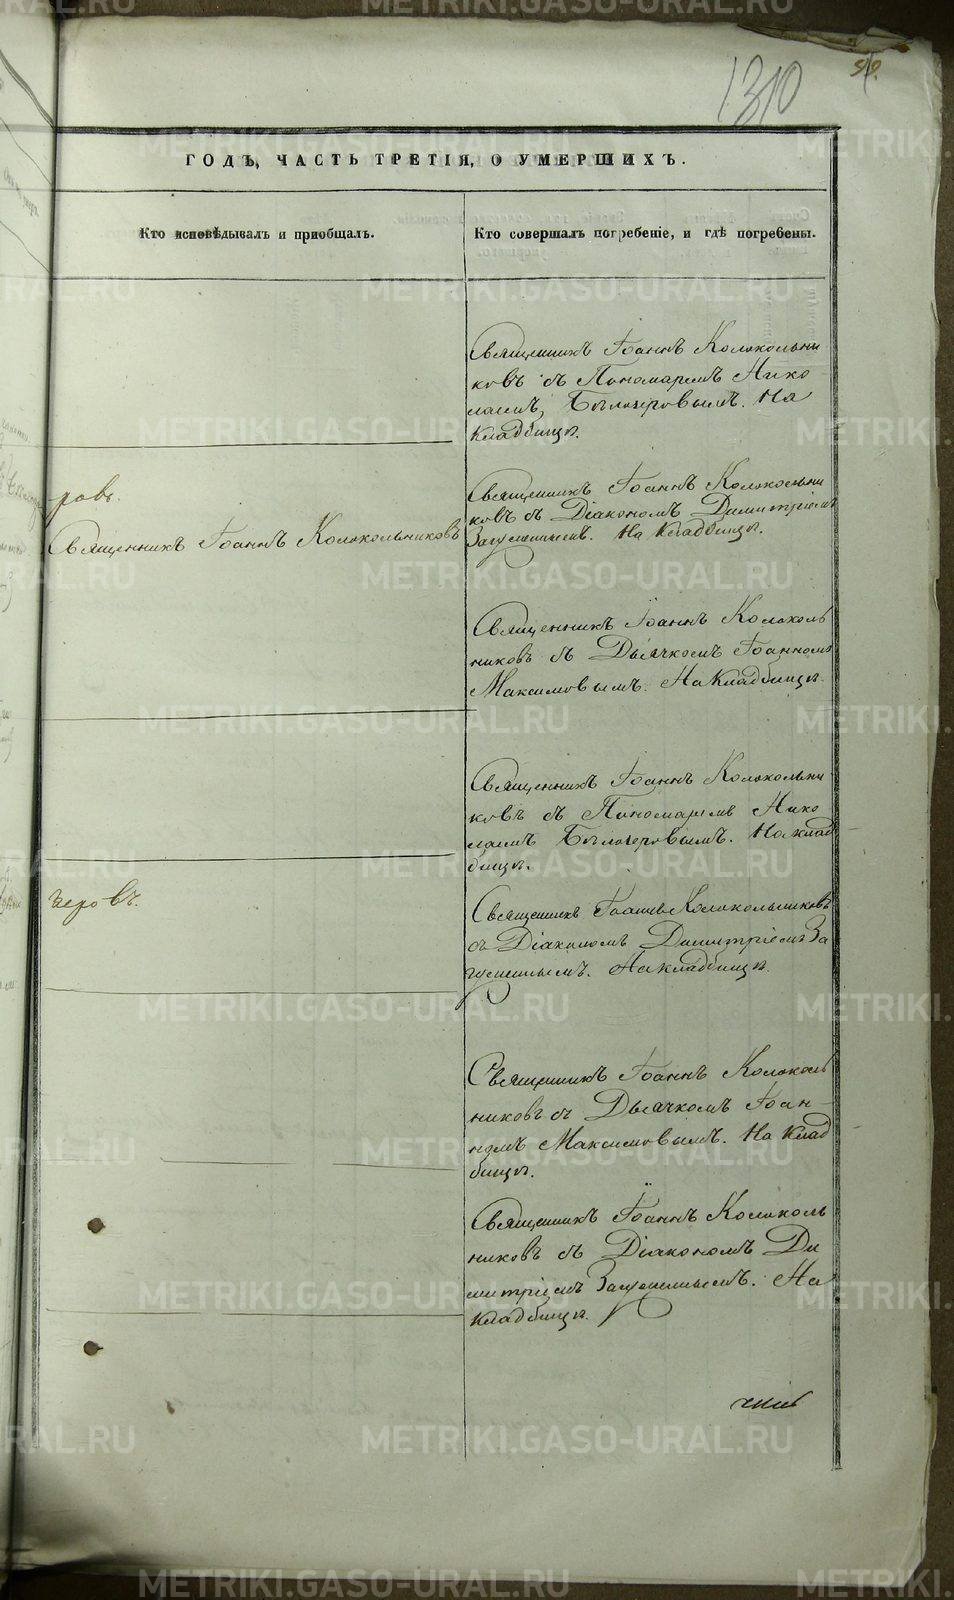 1310
59.
ГОДЪ, ЧАСТЬ ТРЕТІЯ, О УМЕРШИХЪ.
Кто исповѣдывалъ и приобщалъ.
Кто совершалъ погребеніе, и гдѣ погребены.
Священникъ Іоаннъ Колокольни
ковъ съ Пономаремъ Нико
лаемъ Бѣлозеровымъ. На
Кладбищѣ.
ровъ.
Священникъ Іоаннъ Колокольниковъ
Священникъ Іоаннъ Колокольни
ковъ съ Діакономъ Димитріемъ
Загуменнымъ. На Кладбищѣ.
Священникъ Іоаннъ Колоколь
никовъ съ Дьячкомъ Іоанномъ
Максимовымъ. На Кладбищѣ.
Священникъ Іоаннъ Колокольни
ковъ съ Пономаремъ Нико
лаемъ Бѣлозеровымъ. На клад
бищѣ.
зеровъ.
Священникъ Іоаннъ Колокольниковъ
съ Діакономъ Димитріемъ За
гуменнымъ. На кладбищѣ.
Священникъ Іоаннъ Колоколь
никовъ съ Дьячкомъ Іоан
номъ Максимовымъ. На Клад
бищѣ.
Священникъ Іоаннъ Колоколь
никовъ съ Діакономъ Ди
митріемъ Загуменнымъ. На
Кладбищѣ.
METRIKI.GASO-URAL.RU